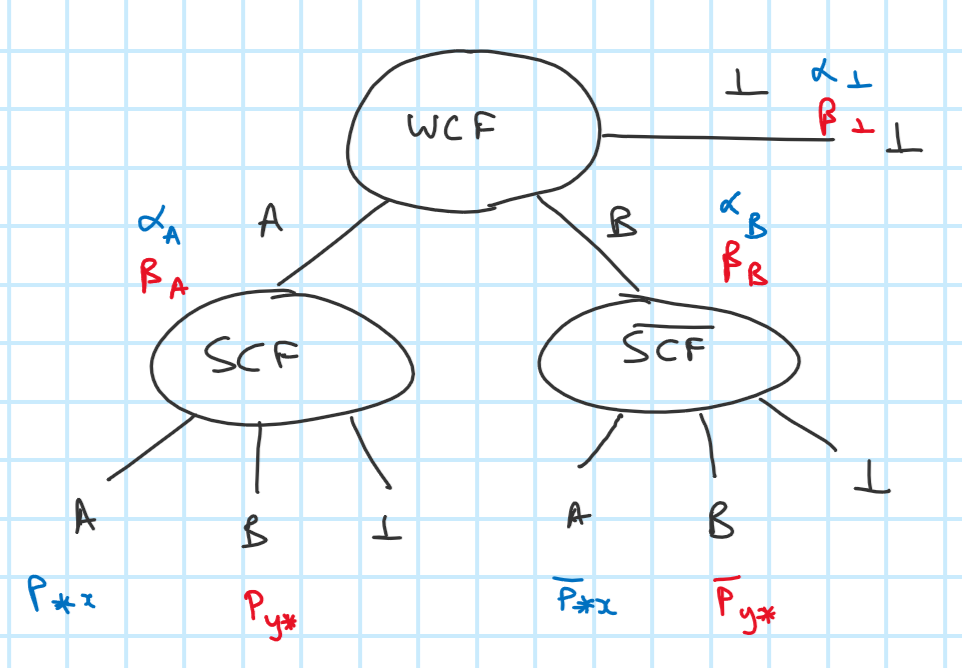 ⊥ α⊥
WCF β⊥ ⊥
αA A B αB
βA βB
SCF S̅C̅F̅
A B ⊥ A B ⊥
P*x Py* P̅*x P̅y*